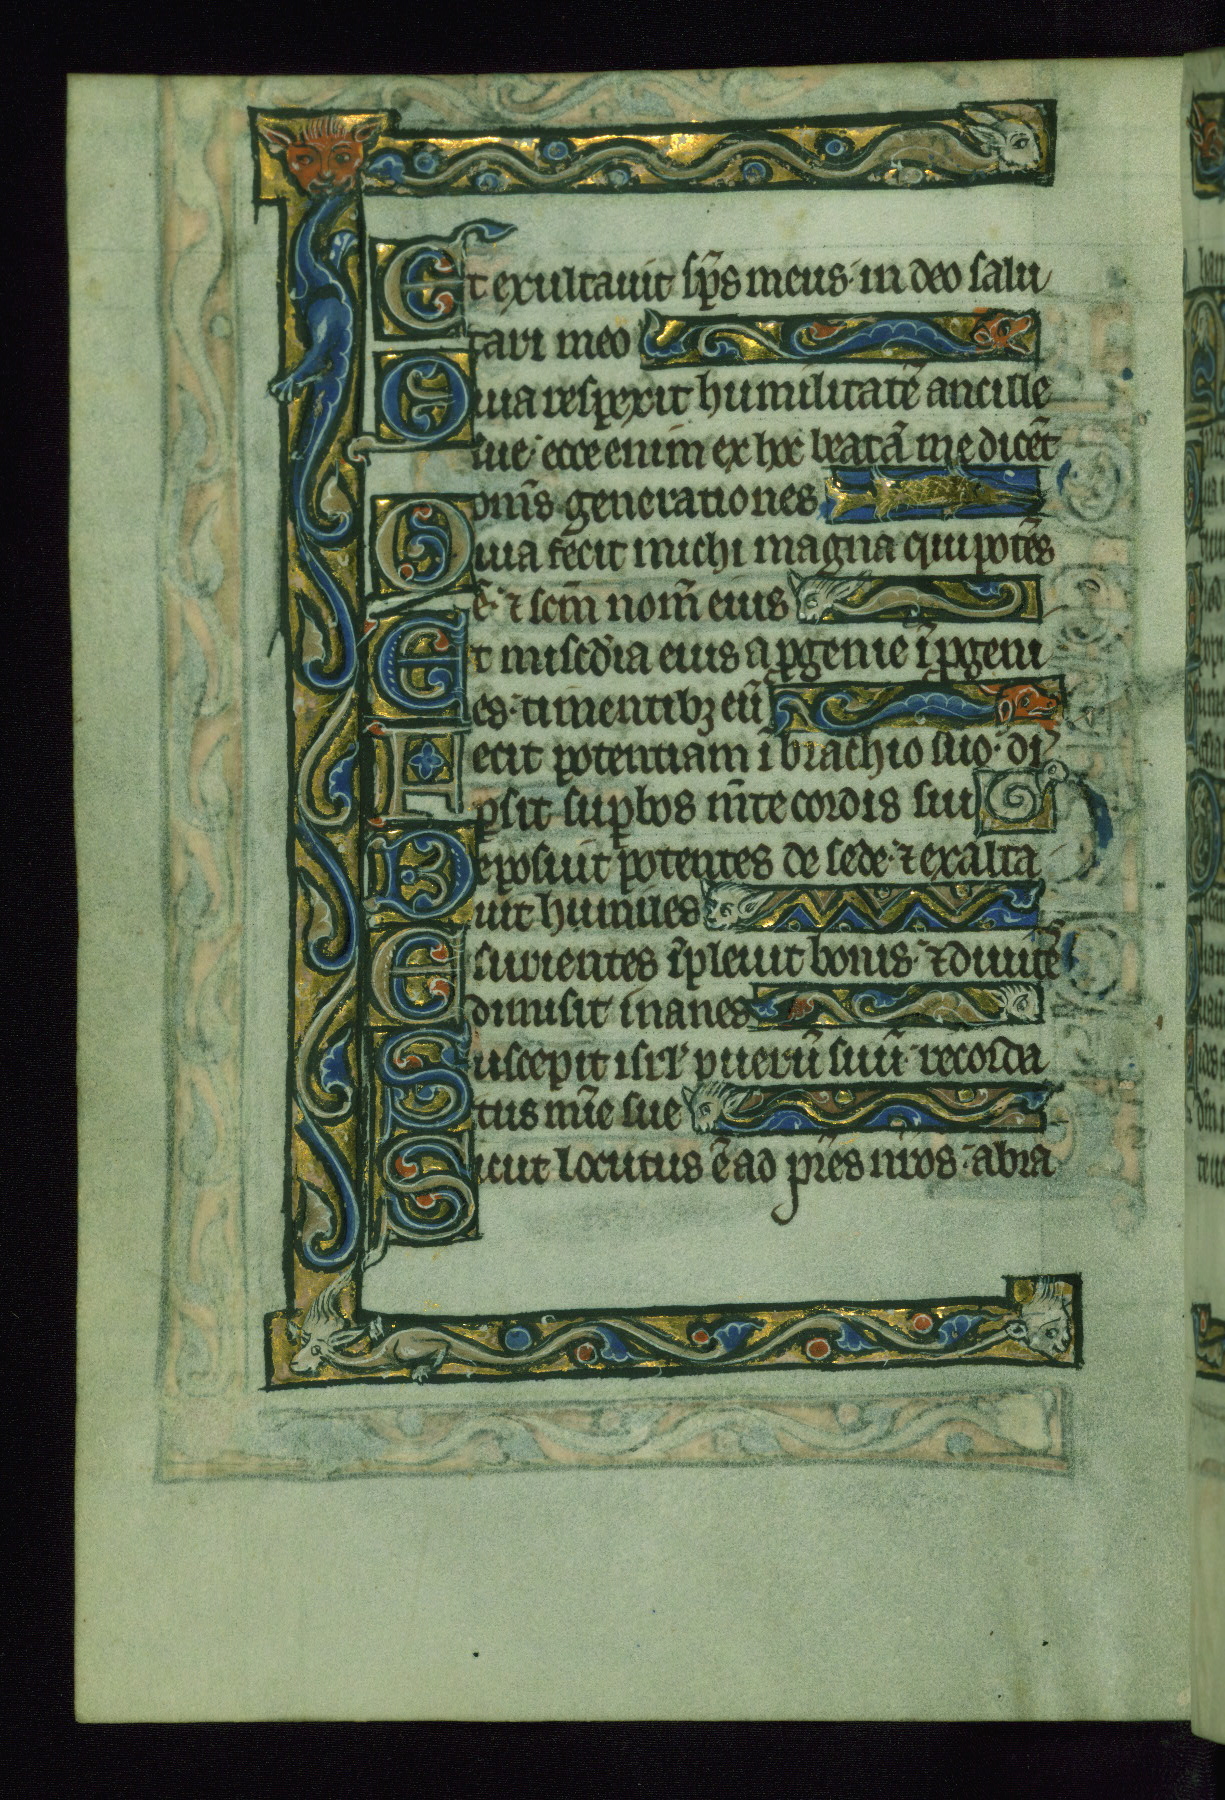 Et exultauit sp̄s meus· in deo salu
tari meo
Quia respexit humilitatē ancille
sue· ecce enim ex hoc beatā me dicēt
om̄s generationes
Quia fecit michi magna qui potēs
ē· ⁊ scm̄ nom̄ eius
Et misc̄dia eius a ꝓgenie ī ꝓgeni
es· timentibꝫ eū
Fecit potentiam ī brachio suo· di
ꝑsit suꝑbos m̄te cordis sui
Deposuit potentes de sede· ⁊ exalta
uit humiles
Esurientes īpleuit bonis· ⁊ diuitē
dimisit inanes
Suscepit isrl' puerū suū· recorda
tus mīe sue
Sicut locutus ē ad pr̄es nr̄os· abra